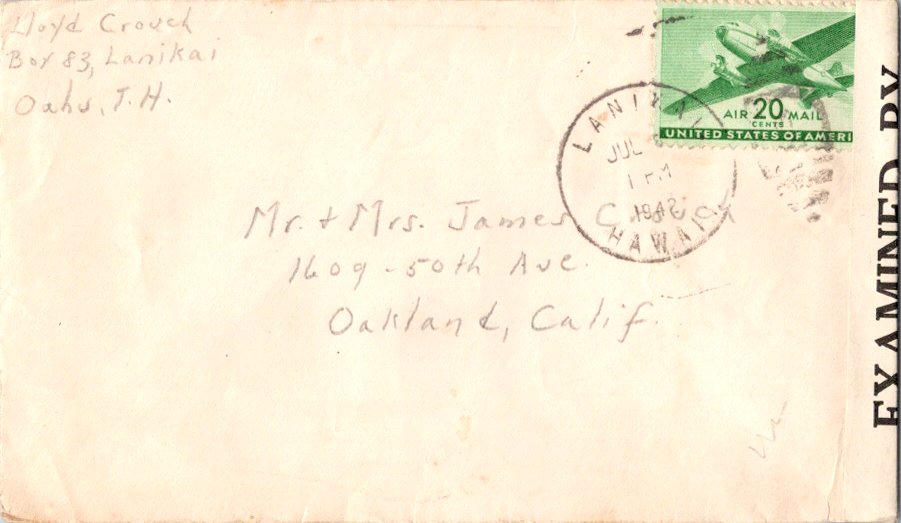 Lloyd Crouch
Box 83, Lanikai
Oahu, T.H.
AIR 20 MAIL
CENTS
UNITED STATES OF AMERI
LANIKAI
JUL
1 PM
1942
HAWAII
Mr. + Mrs. James Crouch
1609 - 50th Ave.
Oakland, Calif.
EXAMINED BY